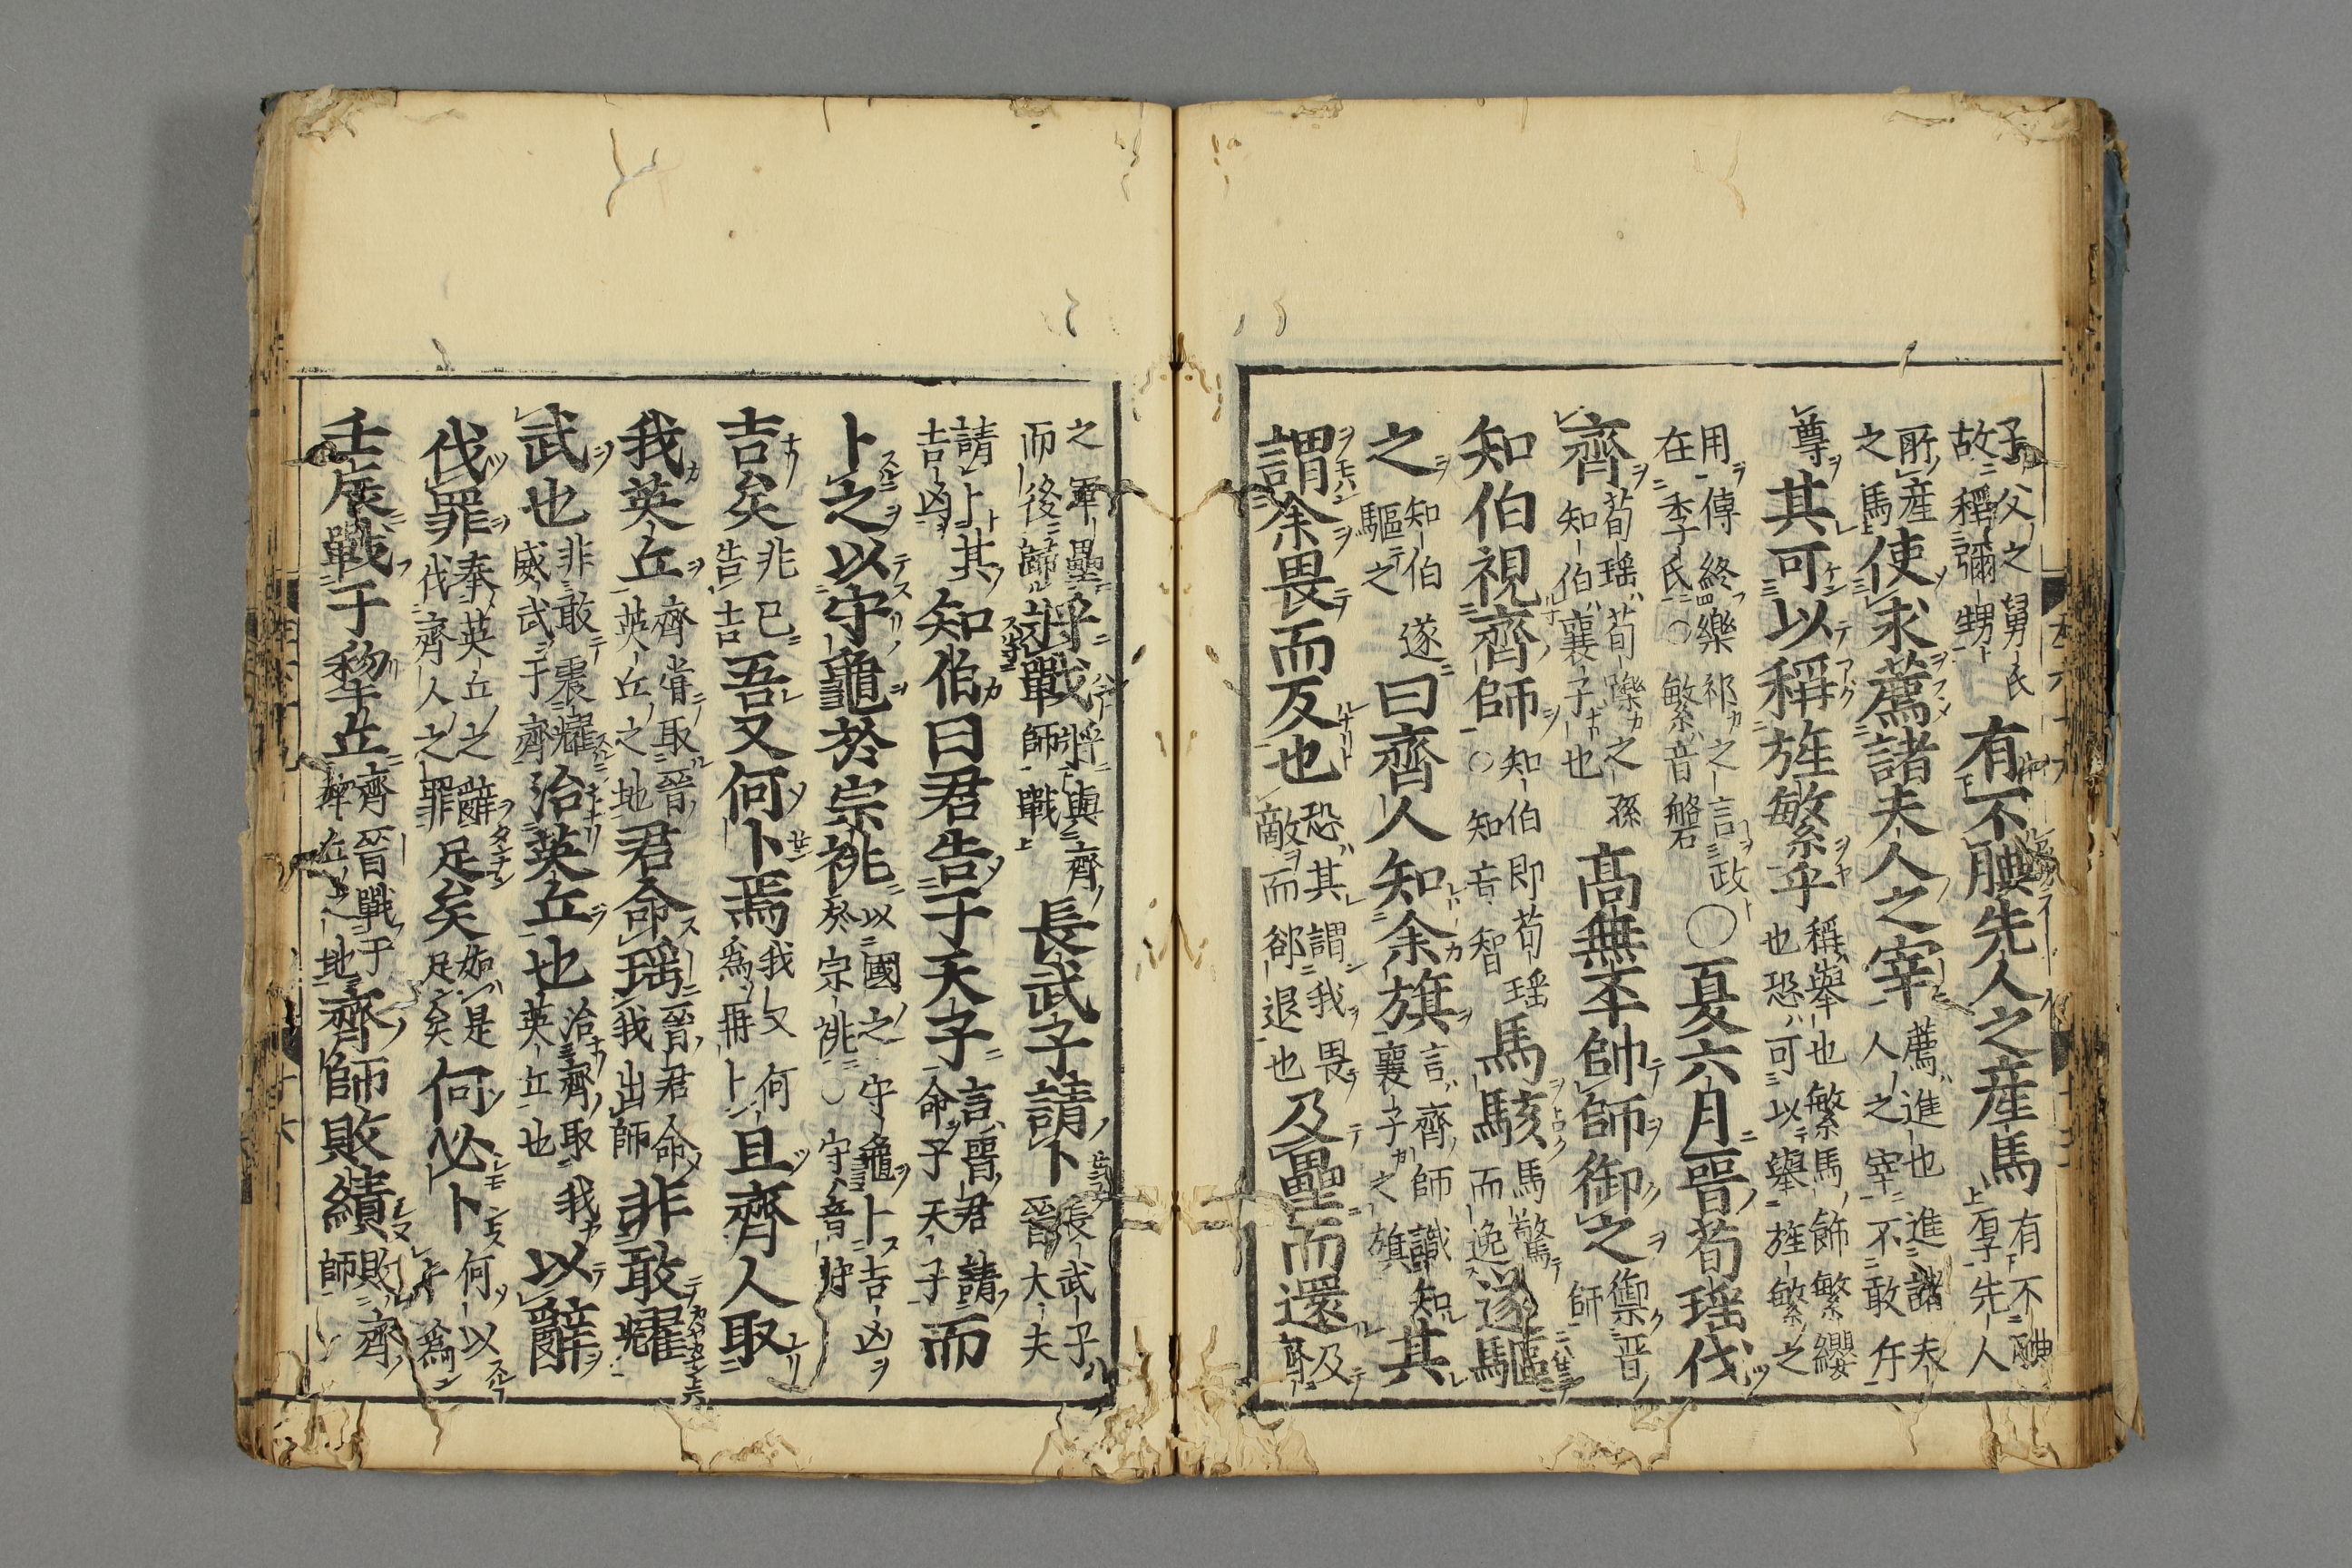 子父之舅氏
故稱彌甥
有不腆先人之産馬
有不腆
厚先人
所産
之馬
使求薦諸夫人之宰
薦進也進諸夫
人之宰不敢斥
尊
其可以稱旌繁乎
稱舉也繁馬飾繁纓
也恐可以舉旌繁之
用傳終樂祁之言政
在季氏○繁音鞶
○夏六月晉荀瑶伐
齊
荀瑶荀躒之孫
知伯襄子也
髙無㔻帥師御之
禦晉
師
知伯視齊師
知伯即荀瑶
○知音智
馬駭
馬驚
而逸
遂驅
之
知伯遂
驅之
曰齊人知余旗
言齊師識知
襄子之旗
其
謂余畏而反也
恐其謂我畏
敵而郤退也
及壘而還
及
齊
之軍壘
而後歸
將戰
將與齊
師戰
長武子請卜
長武子
晉大夫
請卜其
吉凶
知伯曰君告于天子
言晉君請
命于天子
而
卜之以守龜於宗祧
以國之守龜卜吉凶
於宗祧○守音狩
吉矣
非已
告吉
吾又何卜焉
我又何
爲再卜
且齊人取
我英丘
齊嘗取晉
英丘之地
君命瑶
晉君命
我出師
非敢耀
武也
非敢震耀
威武于齊
治英丘也
治齊取我
英丘也
以辭
伐罪
奉英丘之辭
伐齊人之罪
足矣
如是
足矣
何必卜
何以
卜爲
壬辰戰于犂丘
齊晉戰于
犂丘之地
齊師敗績
敗齊
師